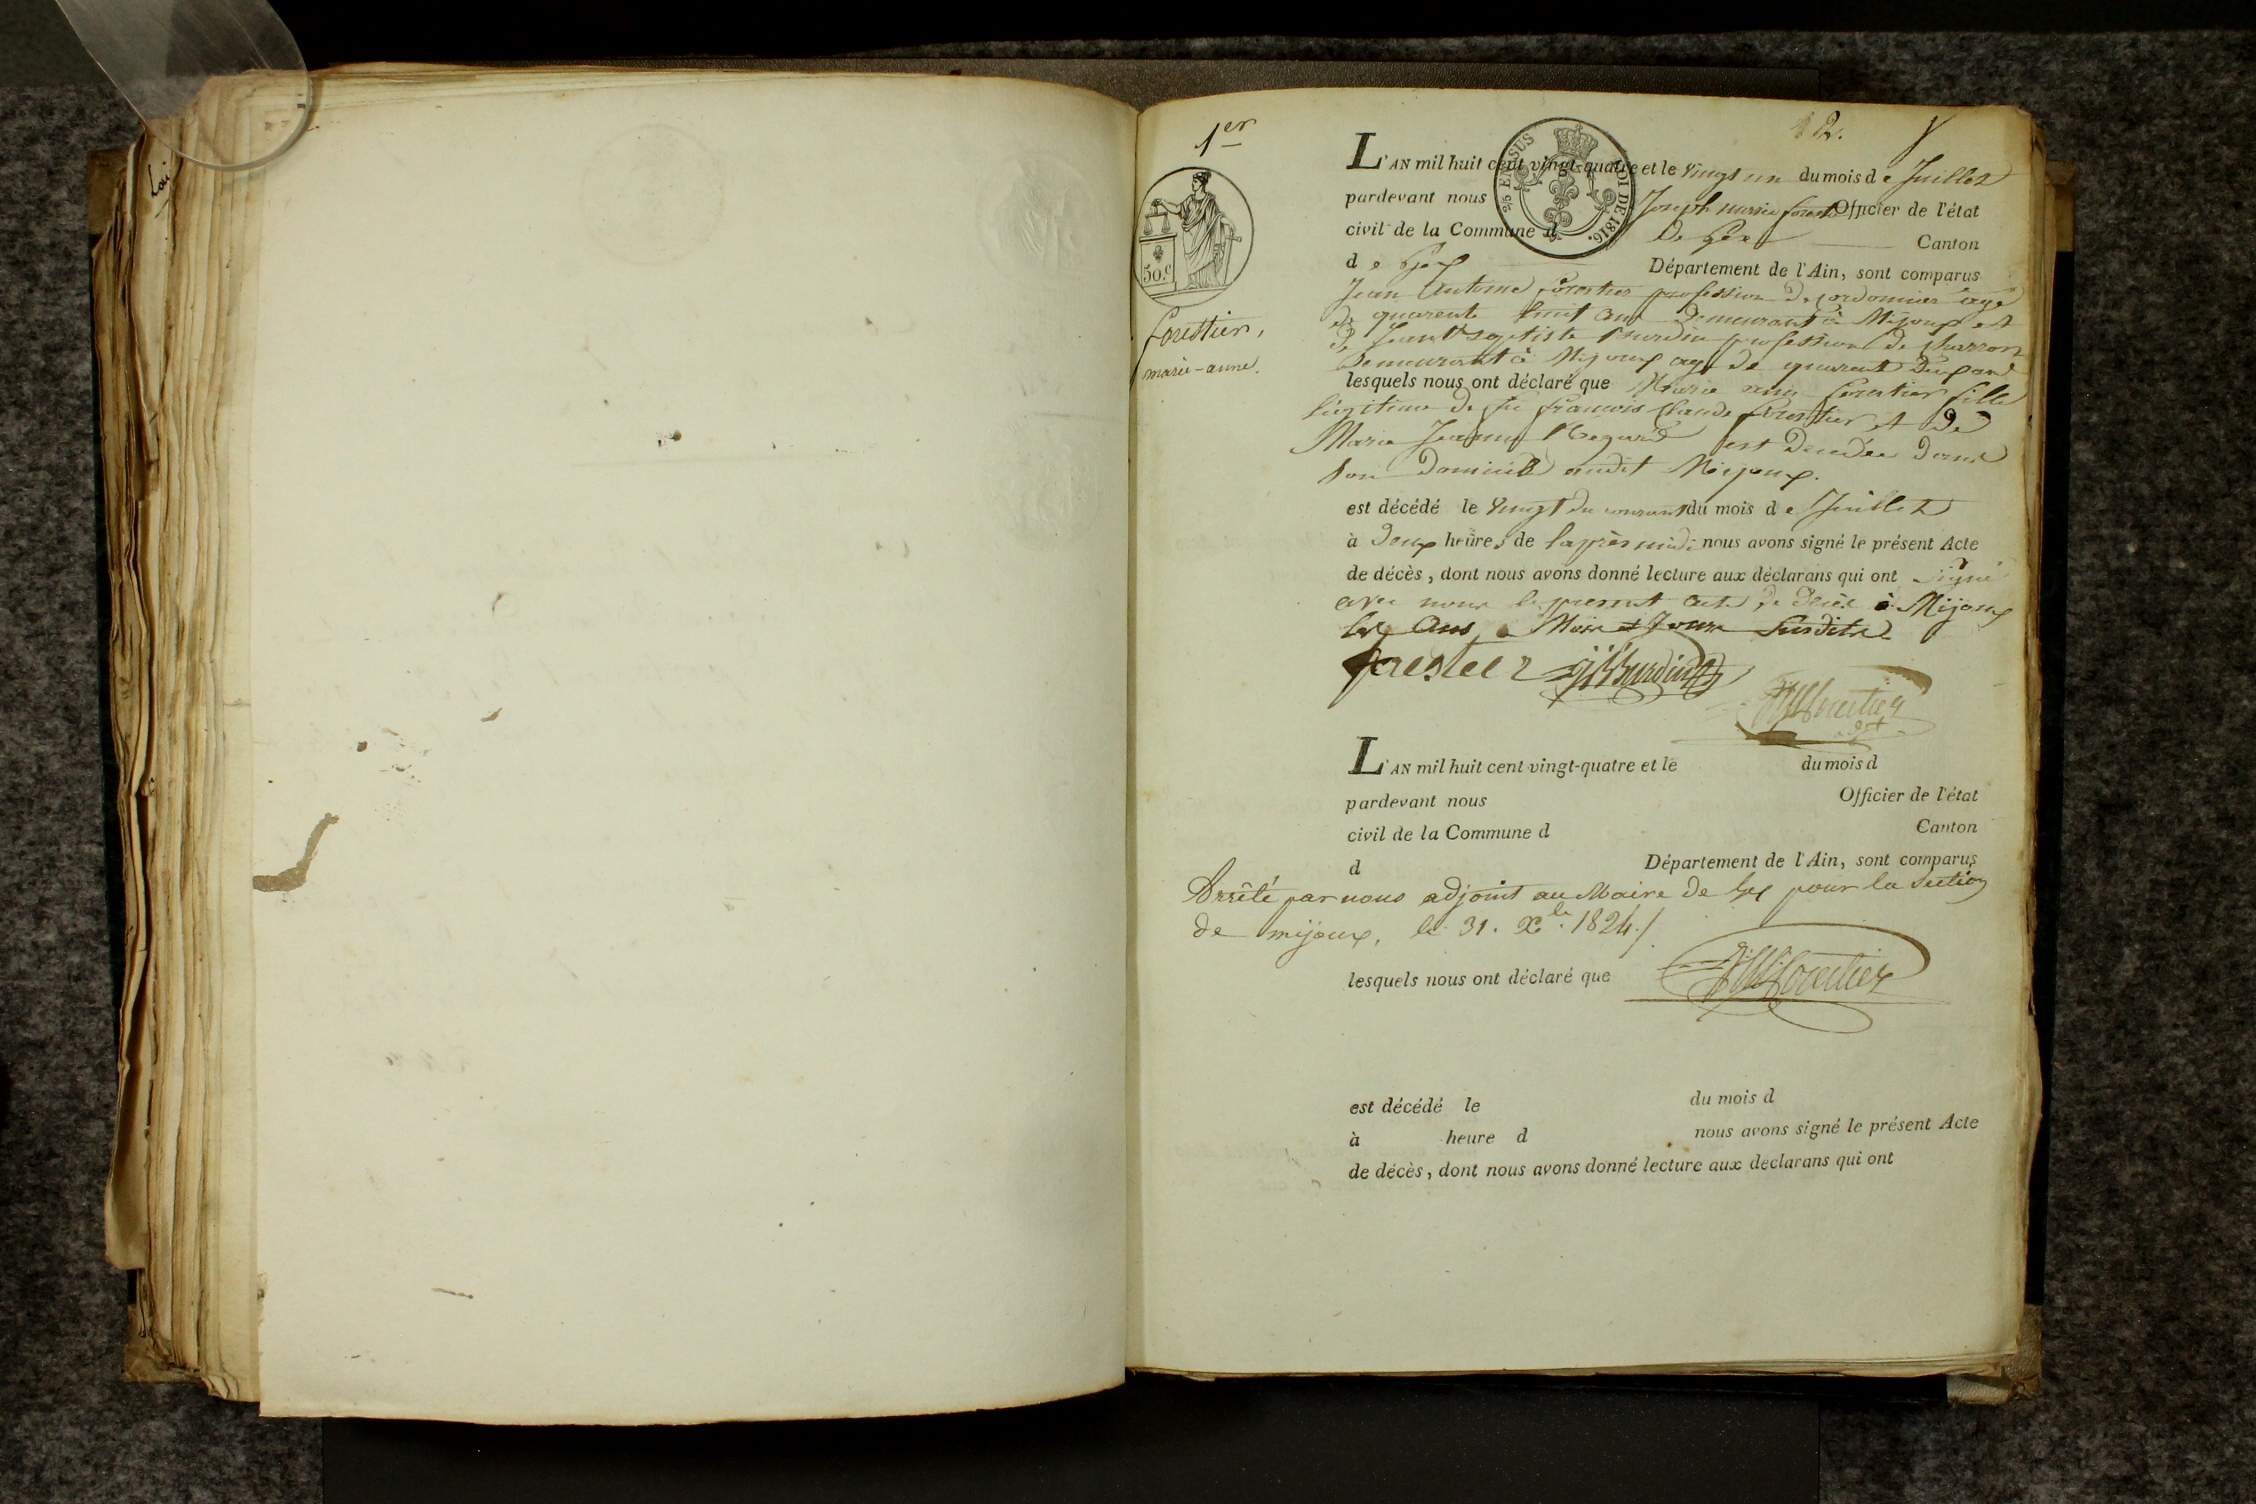 Loi
1er
2.
L'AN mil huit cent vingt-quatre et le vingt un du mois de Juillet
25 EN SUS
LOI DE 1816.
pardevant nous Joseph marie forestier Officier de l'état
civil de la Commune d De Gex Canton
50.c
de Gex Département de l'Ain, sont comparus
Jean Antoine forestier profession De cordonnier agé
de quarente huit ans demeurant à Mijoux et
forestier,
de Jean Baptiste Burdin profession de charron
marie-anne.
Demeurant à Mijoux agé de quarente
lesquels nous ont déclaré que Marie anne forestier fille
légitime de feu francois Claude forestier et De
Marie Jeanne Regard est Décédée Dans
son Domicile audit Mijoux.
est décédé le vingt du courant du mois de Juillet
à Deux heures de laprès midi nous avons signé le présent Acte
de décès, dont nous avons donné lecture aux déclarans qui ont signé
avec nous le present acte de décès à Mijoux
les ans, Mois et Jours susdits.
forestier JBBurdin
JMforestier
adjt
L'AN mil huit cent vingt-quatre et le du mois d
pardevant nous Officier de l'état
civil de la Commune d Canton
d Département de l'Ain, sont comparus
Arrêté par nous adjoint au Maire de Gex pour la section
de mijoux, le 31. Xbre 1824./
lesquels nous ont déclaré que JMforestier
est décédé le du mois d
à heure d nous avons signé le présent Acte
de décès, dont nous avons donné lecture aux déclarans qui ont